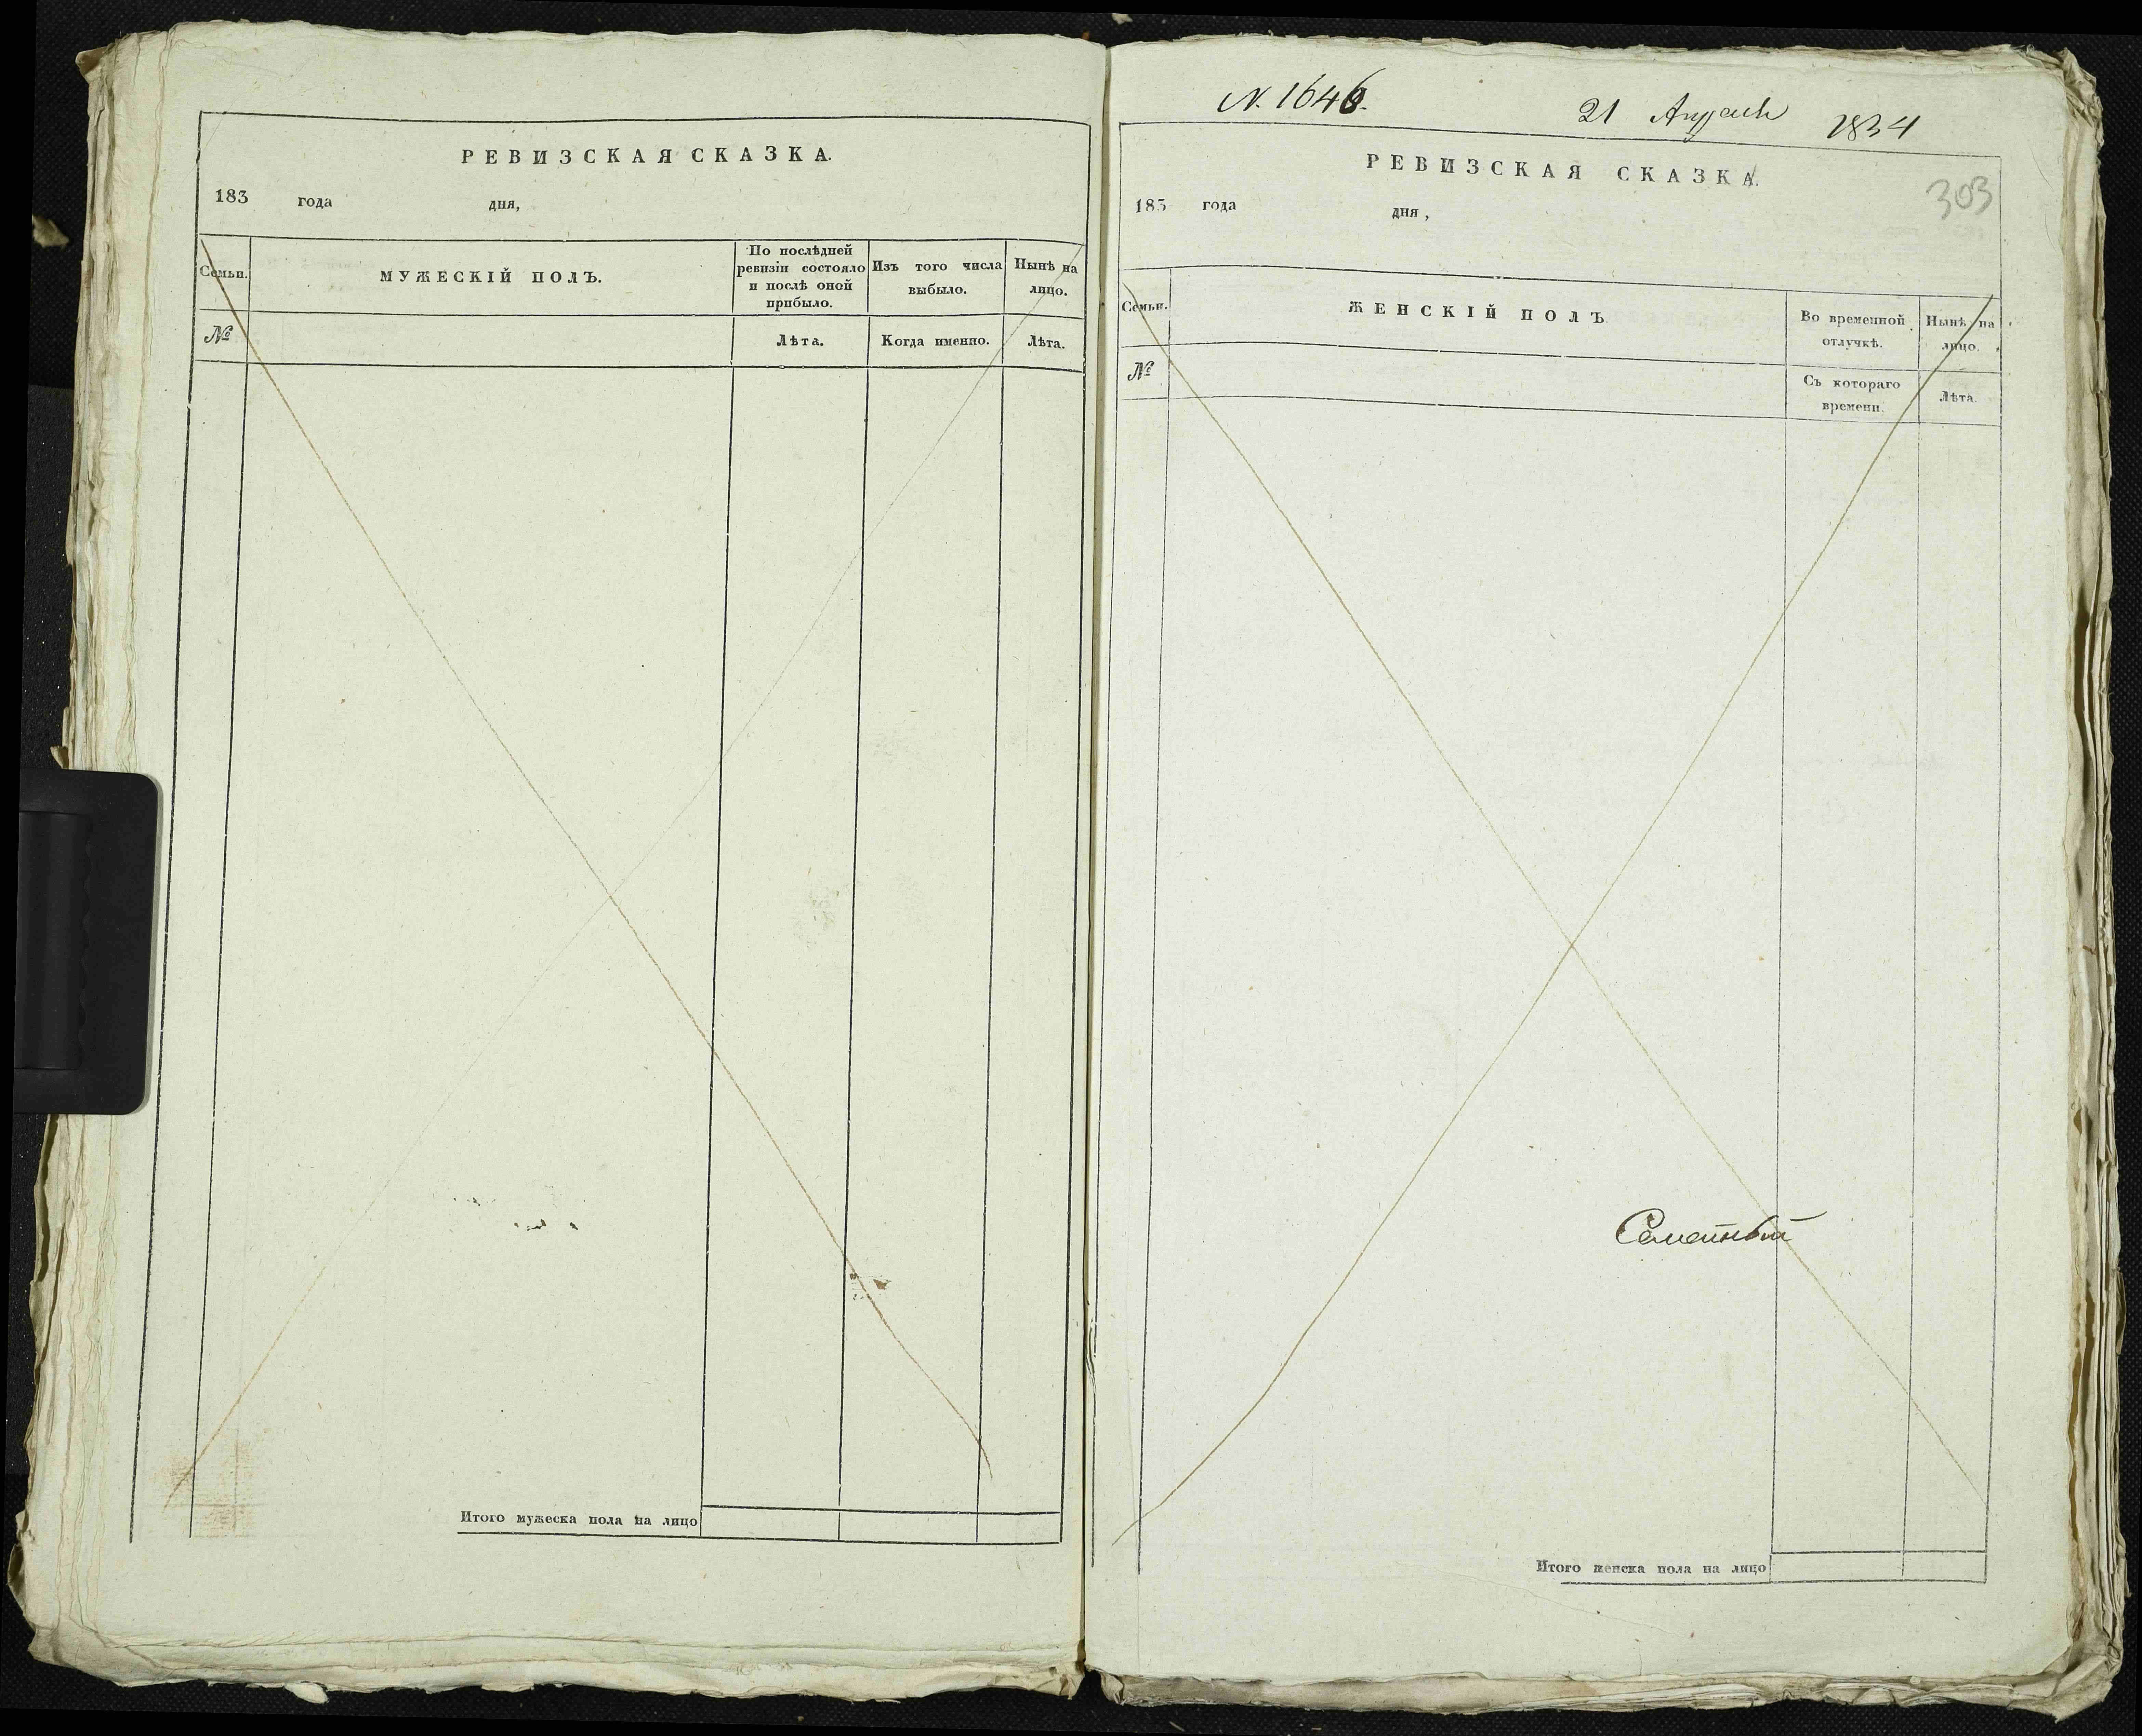 РЕВИЗСКАЯ СКАЗКА.
183 года дня,
Семьи.
МУЖЕСКІЙ ПОЛЪ.
По послѣдней
ревизіи состояло
и послѣ оной
прибыло.
Изъ того числа
выбыло.
Нынѣ на
лицо.
№
Лѣта.
Когда именно.
Лѣта.
Итого мужеска пола на лицо
N. 1646.
21 Апреля 1834
РЕВИЗСКАЯ СКАЗКА.
303
183 года дня,
Семьи.
ЖЕНСКІЙ ПОЛЪ
Во временной
отлучкѣ.
Нынѣ на
лицо.
№
Съ котораго
времени.
Лѣта.
Итого женска пола на лицо